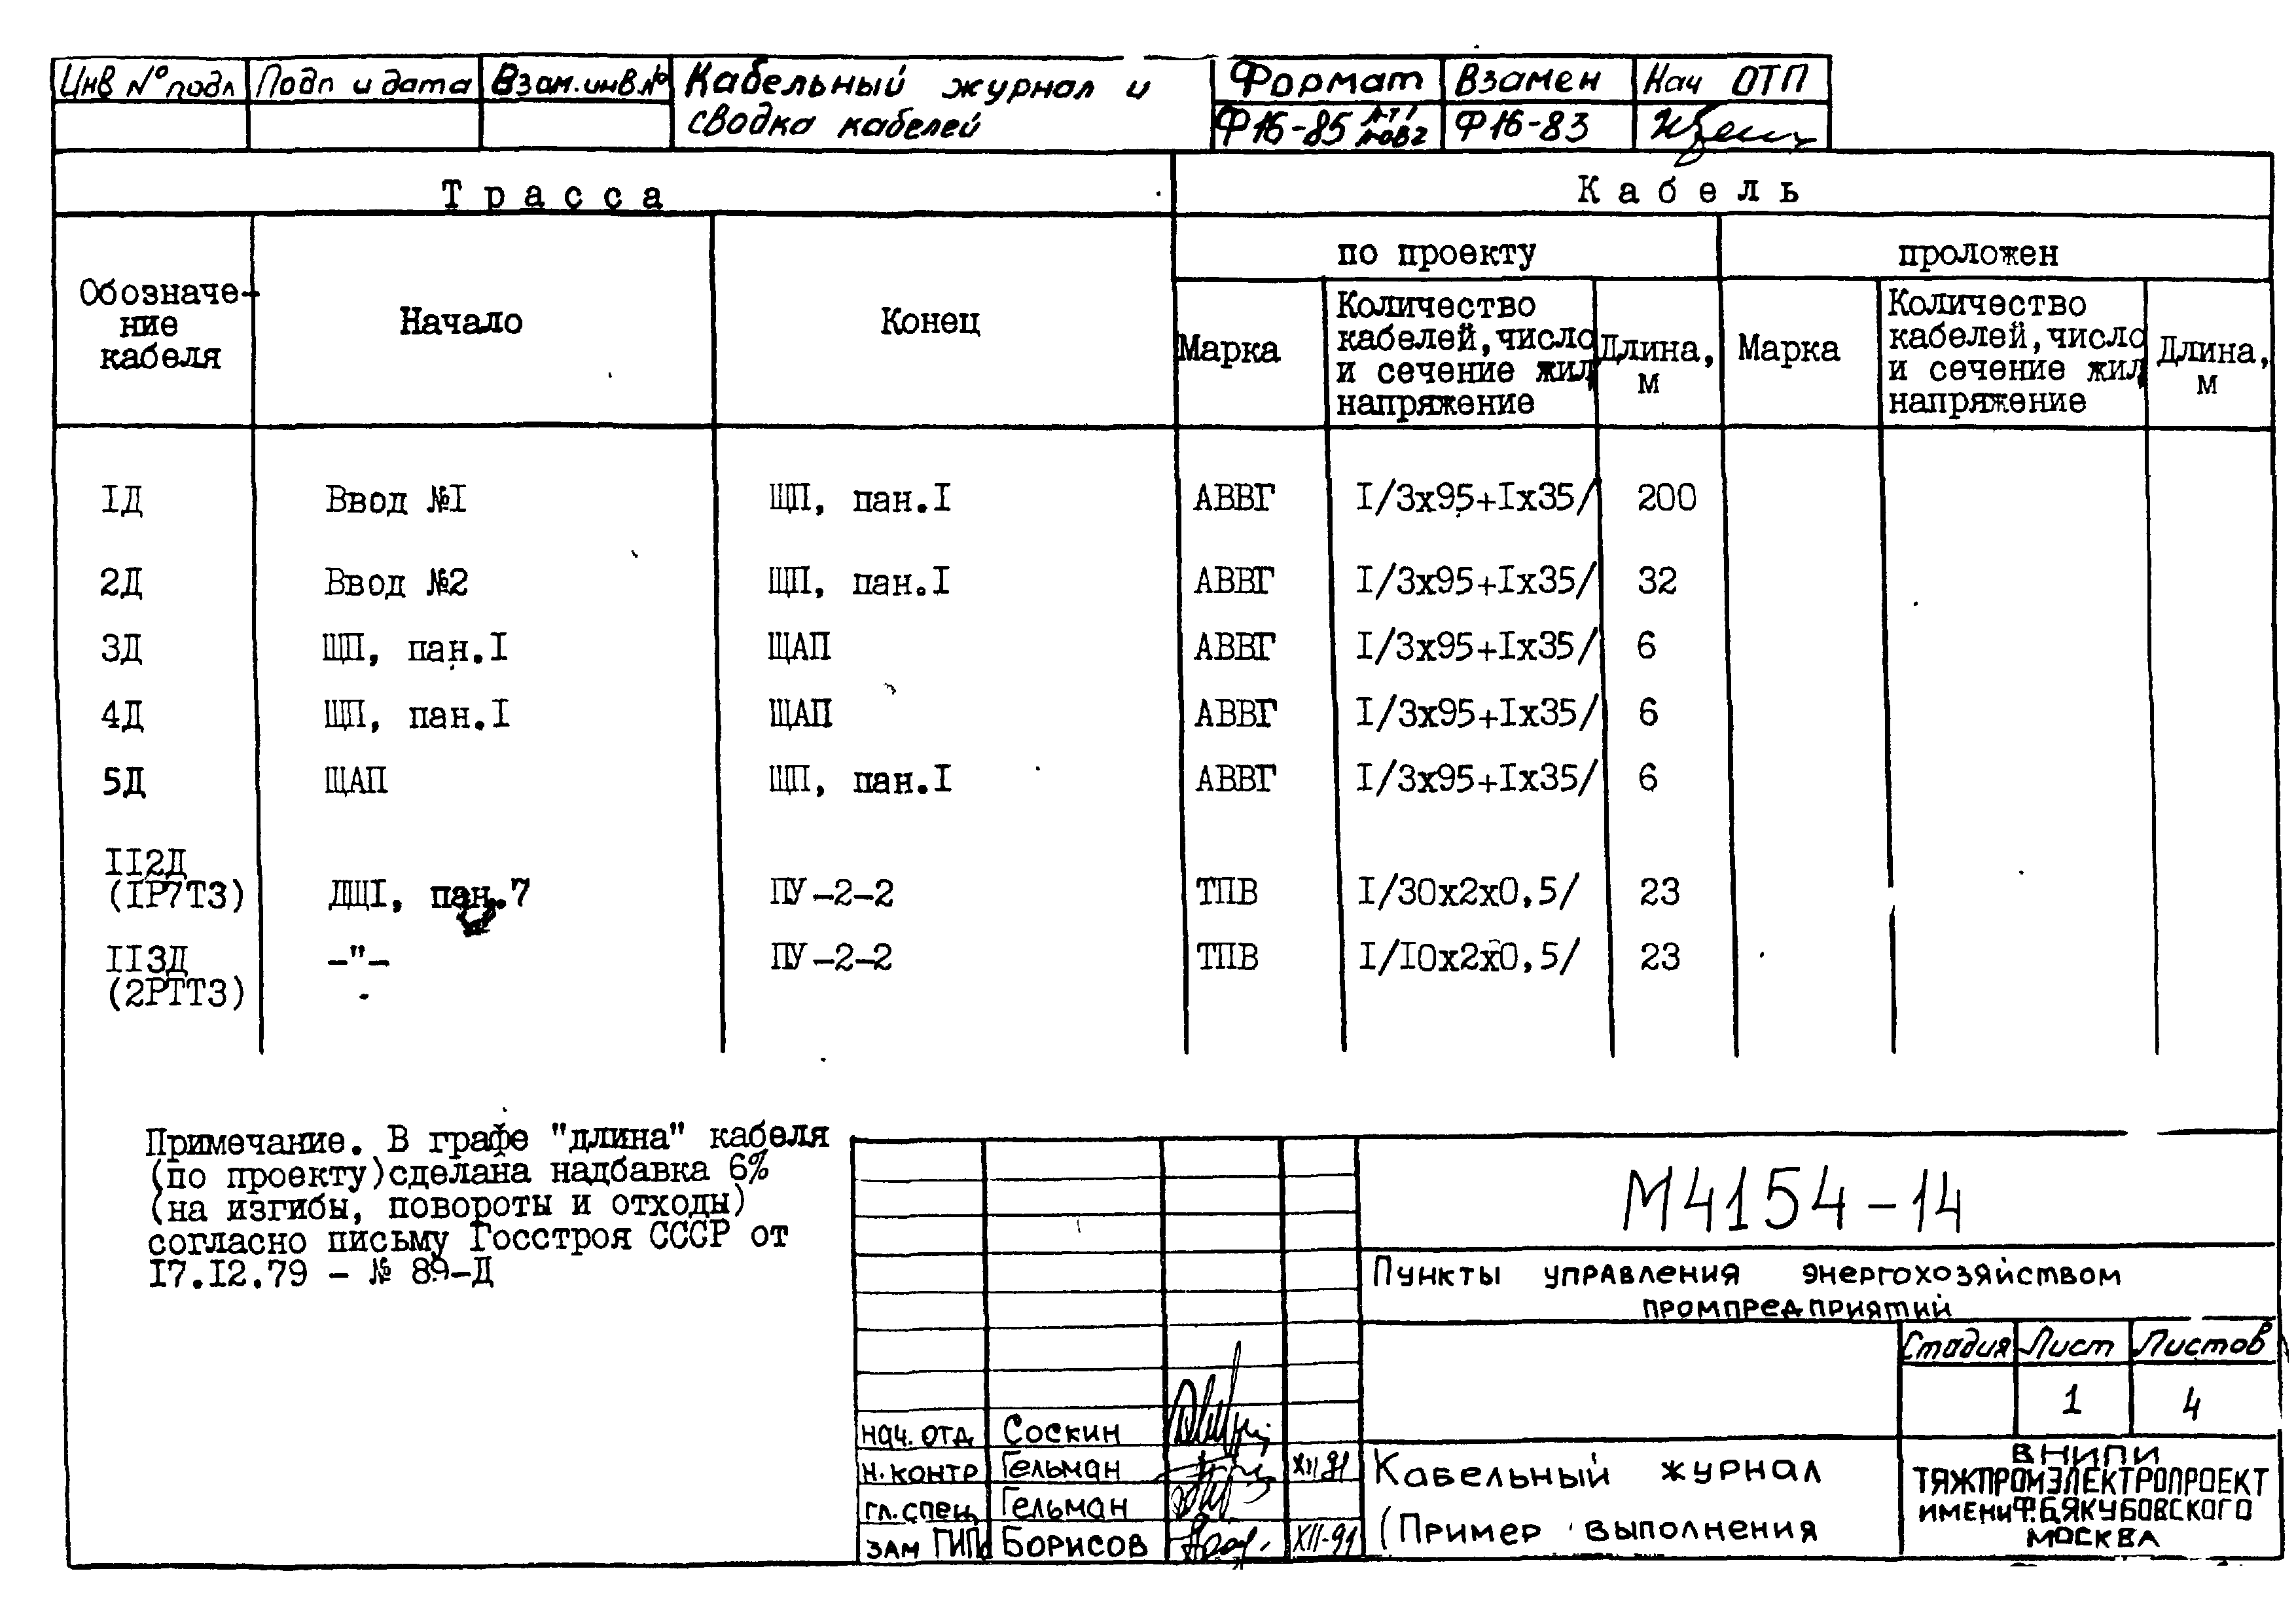 Инв № подл Подп и дата Взам.инв.№ Кабельный журнал и Формат Взамен Нач ОТП
сводка кабелей Ф16-85 Ф16-83
Трасса Кабель
по проекту проложен
Обозначе-
ние
кабеля
Начало
Конец
Марка
Количество
кабелей,число
и сечение жил
напряжение
Длина,
м
Марка
Количество
кабелей,число
и сечение жил
напряжение
Длина,
м
IД Ввод №I ЩП, пан.I АВВГ I/3х95+Iх35/ 200
2Д Ввод №2 ЩП, пан.I АВВГ I/3х95+Iх35/ 32
3Д ЩП, пан.I ЩАП АВВГ I/3х95+Iх35/ 6
4Д ЩП, пан.I ЩАП АВВГ I/3х95+Iх35/ 6
5Д ЩАП ЩП, пан.I АВВГ I/3х95+Iх35/ 6
II2Д
(IР7ТЗ) ДЩI, пан.7 ПУ-2-2 ТПВ I/30х2х0,5/ 23
II3Д -"- ПУ-2-2 ТПВ I/I0х2х0,5/ 23
(2РТТЗ)
Примечание. В графе "длина" кабеля
(по проекту)сделана надбавка 6%
(на изгибы, повороты и отходы)
согласно письму Госстроя СССР от
I7.I2.79 - № 89-Д
М4154-14
Пункты управления энергохозяйством
промпредприятий
Стадия Лист Листов
1 4
нач. отд Соскин
н. контр Гельман XII 91
гл. спец Гельман
зам ГИПа Борисов XII-91
Кабельный журнал
(Пример выполнения
ВНИПИ
ТЯЖПРОМЭЛЕКТРОПРОЕКТ
ИМЕНИ Ф.Б.ЯКУБОВСКОГО
МОСКВА